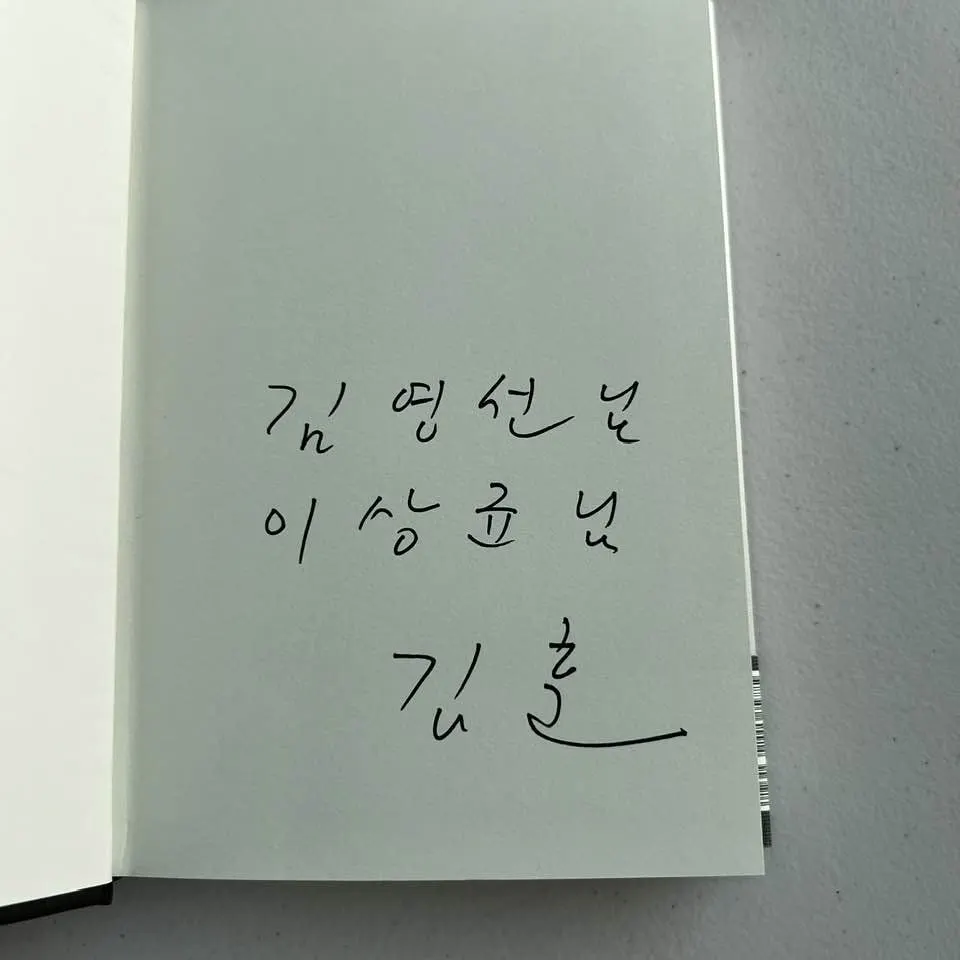 김 영 선 님
이 상 규 님
김 훈